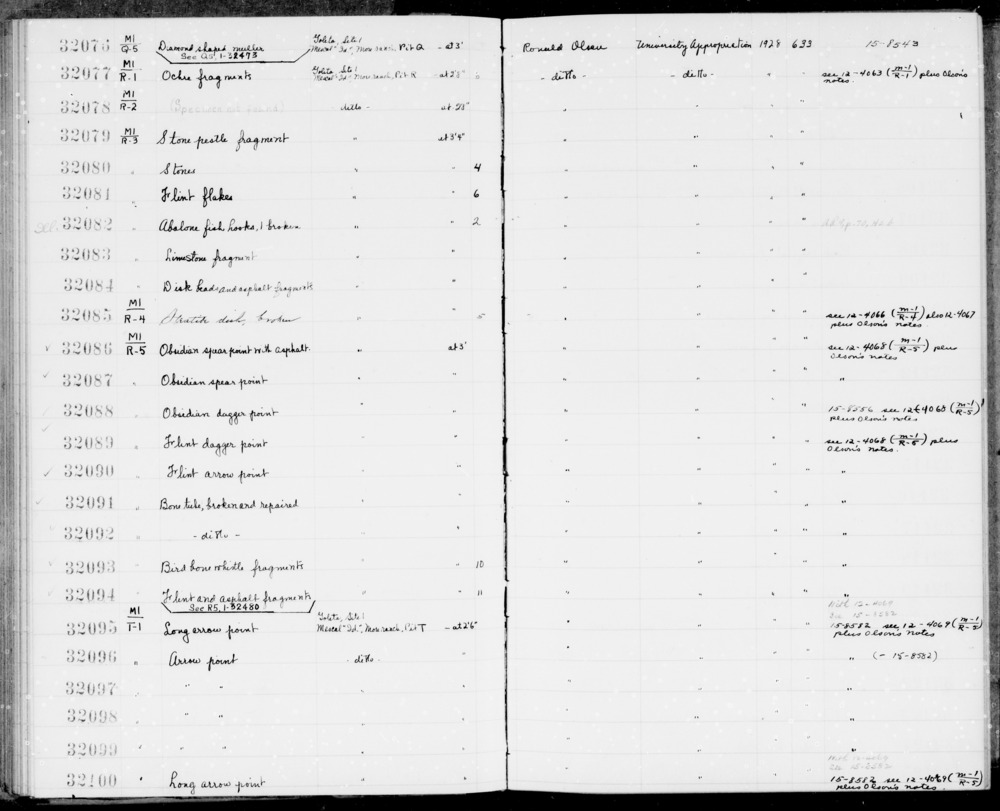 32076 MI/Q-5 Diamond shaped muller Goleta, Site 1 Mescal "Isd", More ranch, Pit Q - at 3' Ronald Olson University Appropriation 1928 633 15-8543
See Q5, 1-32473
32077 MI/R-1 Ochre fragments Goleta, Site 1 Mescal "Isd" More ranch, Pit R - at 2'8" 6 - ditto - - ditto - " " see 12-4063 (m-1/R-1) plus Olson's notes
32078 MI/R-2 (Specimen not found) - ditto - at 2'8" " " " "
32079 MI/R-3 Stone pestle fragment " at 3'4" " " " "
32080 " Stones " " 4 " " " "
32081 " Flint flakes " " 6 " " " "
32082 " Abalone fish hooks, 1 broken " " 2 " " " "
32083 " Limestone fragment " " " " " "
32084 " Disk beads and asphalt fragments " " " " " "
32085 MI/R-4 Steatite dish, broken " " 5 " " " " see 12-4066 (m-1/R-4) also 12-4067 plus Olson's notes
32086 MI/R-5 Obsidian spear point with asphalt " at 3' " " " " see 12-4068 (m-1/R-5) plus Olson's notes
32087 " Obsidian spear point " " " " " " "
32088 " Obsidian dagger point " " " " " " 15-8556 see 12-4068 (m-1/R-5) plus Olson's notes
32089 " Flint dagger point " " " " " " see 12-4068 (m-1/R-5) plus Olson's notes.
32090 " Flint arrow point " " " " " " "
32091 " Bone tube, broken and repaired " " " " " " "
32092 " - ditto - " " " " " " "
32093 " Bird bone whistle fragments " " 10 " " " " "
32094 " Flint and asphalt fragments " " 11 " " " " "
See R5, 1-32480
32095 MI/T-1 Long arrow point Goleta, Site 1 Mescal "Isd", More ranch, Pit T - at 2'6" " " " " 15-8582 see 12-4069 (m-1/R-5) plus Olson's notes
32096 " Arrow point - ditto - " " " " " " (- 15-8582)
32097 " " " " " " " " " "
32098 " " " " " " " " " "
32099 " " " " " " " " " "
32100 " Long arrow point " " " " " " 15-8582 see 12-4069 (m-1/R-5) plus Olson's notes.